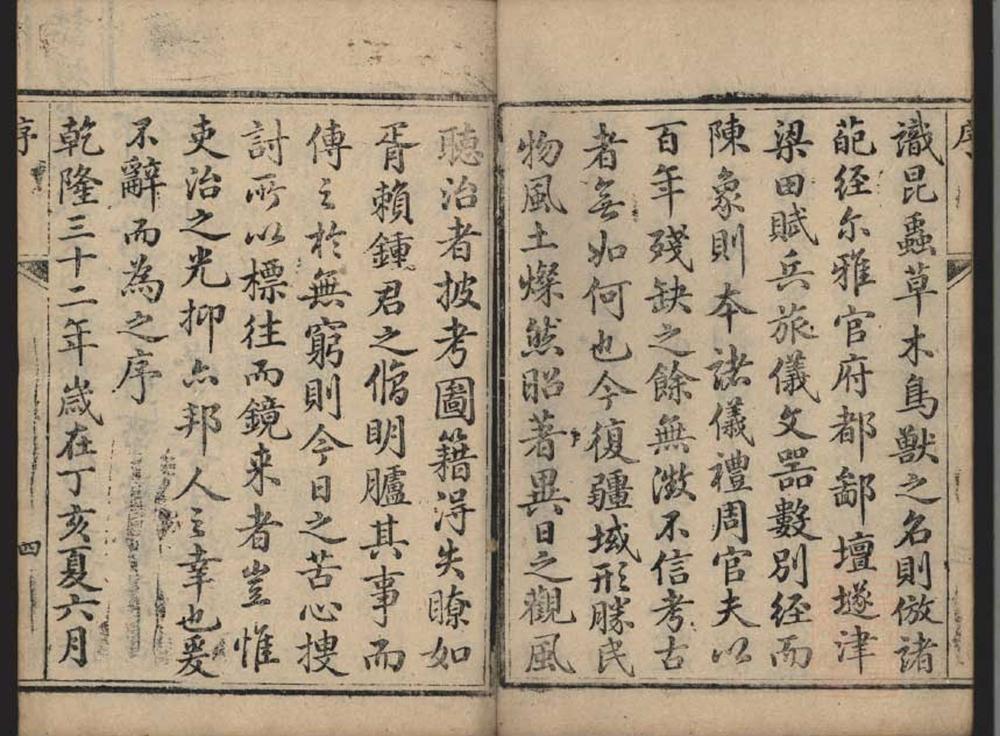 序
識昆蟲草木鳥獸之名則倣諸
葩経尔雅官府都鄙壇墜津
梁田賦兵旅儀文器數別経而
陳象則本諸儀禮周官夫以
百年殘缺之餘無徵不信考古
者無如何也今復疆域形勝民
物風土燦然昭著異日之觀風
聽治者披考圖籍得失瞭如
胥賴鍾君之脩明臚其事而
傳之於無窮則今日之苦心搜
討所以標往而鏡来者豈惟
吏治之光抑亦邦人之幸也爰
不辭而為之序
乾隆三十二年歲在丁亥夏六月
序
四